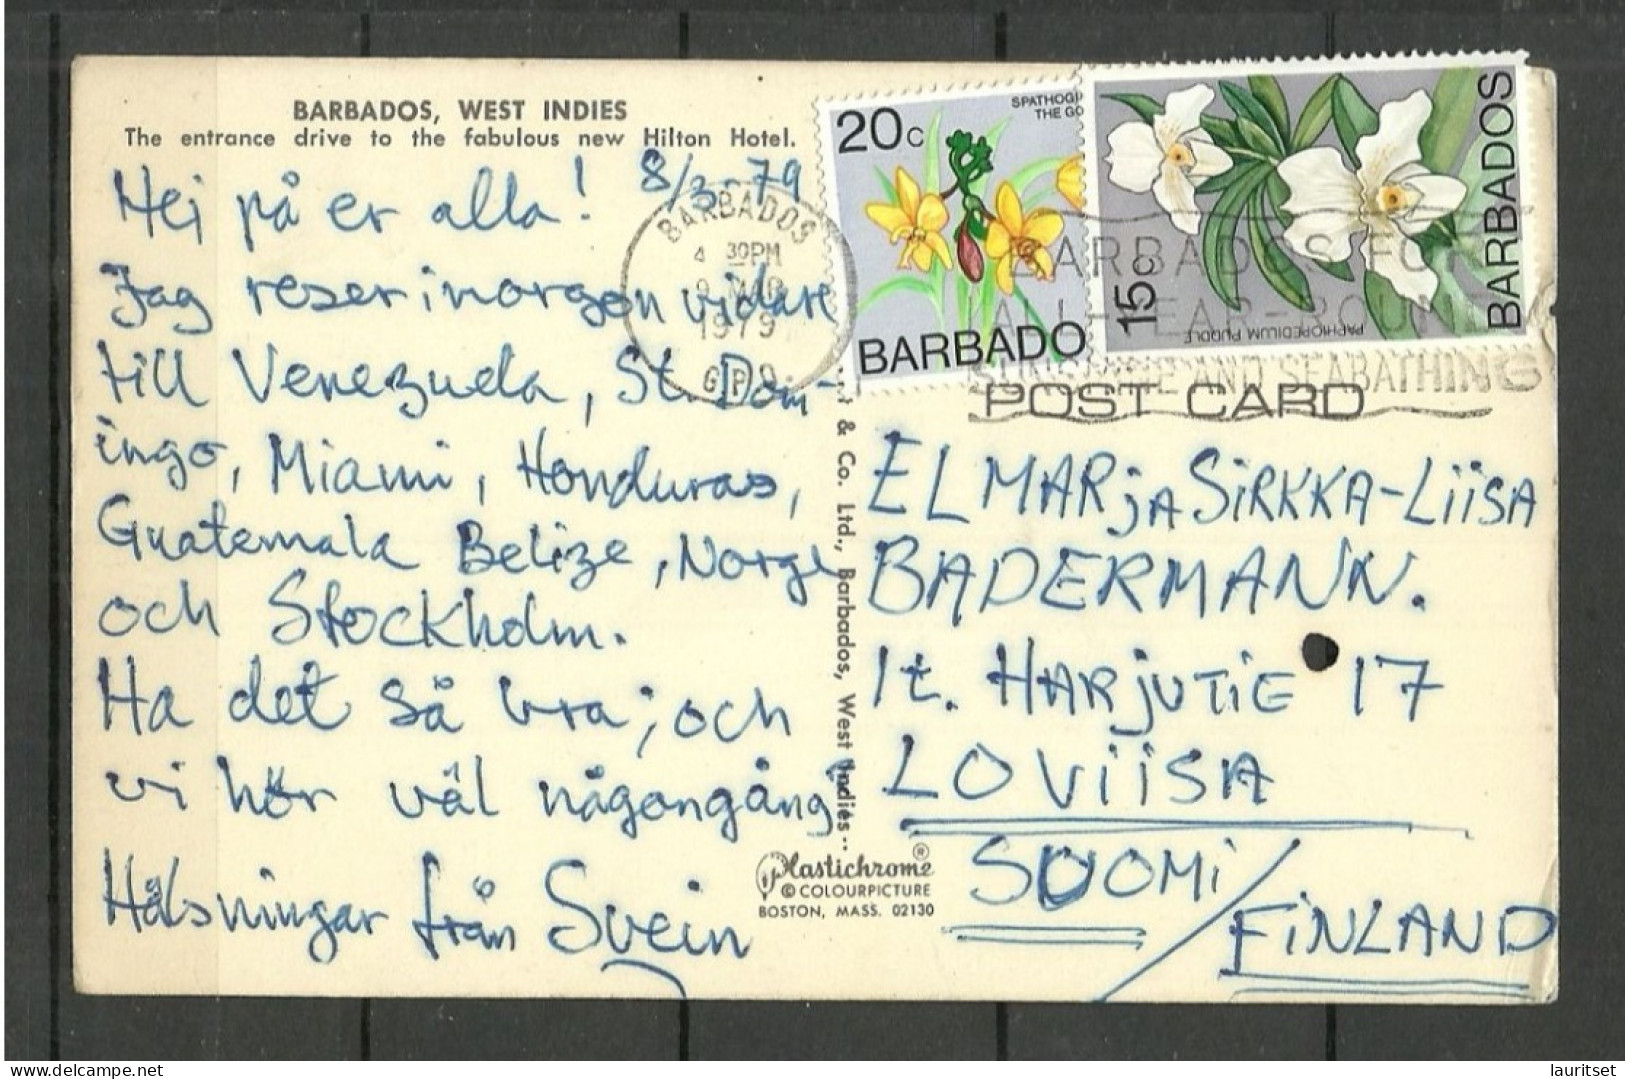 BARBADOS, WEST INDIES
The entrance drive to the fabulous new Hilton Hotel.
8/3-79
Hej på er alla!
Jag reser imorgon vidare
till Venezuela, St. Dom-
ingo, Miami, Honduras,
Guatemala Belize, Norge
och Stockholm.
Ha det så bra; och
vi hör väl någongång
Hälsningar från Svein
BARBADOS
4 30PM
9 MAR
1979
G.P.O.
20c
SPATHOGL
THE GO
BARBADO
15c
PAPHIOPEDILUM PUDDLE
BARBADOS
BARBADOS FOR
ALL-YEAR-ROUND
SUNSHINE AND SEABATHING
POST CARD
& Co. Ltd., Barbados, West Indies
Plastichrome®
© COLOURPICTURE
BOSTON, MASS. 02130
ELMAR jA SiRKKA-LiiSA
BADERMANN.
It. HARjUTiE 17
LOViiSA
SUOMi/
FiNLAND
www.delcampe.net
lauritset